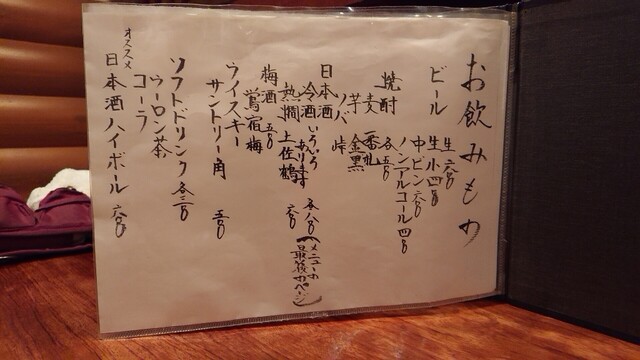 お飲みもの
ビール
生 六〇〇
生小 四〇〇
中ビン 六〇〇
ノンアルコール 四〇〇
焼酎 各 五〇〇
麦
芋 金黒
ソバ 峠
日本酒
冷酒 いろいろあります 各 八〇〇
(メニューの最後のページ)
熱燗 上佐鶴 六〇〇
梅酒 五〇〇
鶯宿梅
ウイスキー
サントリー角 五〇〇
ソフトドリンク 各 三〇〇
ウーロン茶
コーラ
オススメ
日本酒ハイボール 六〇〇